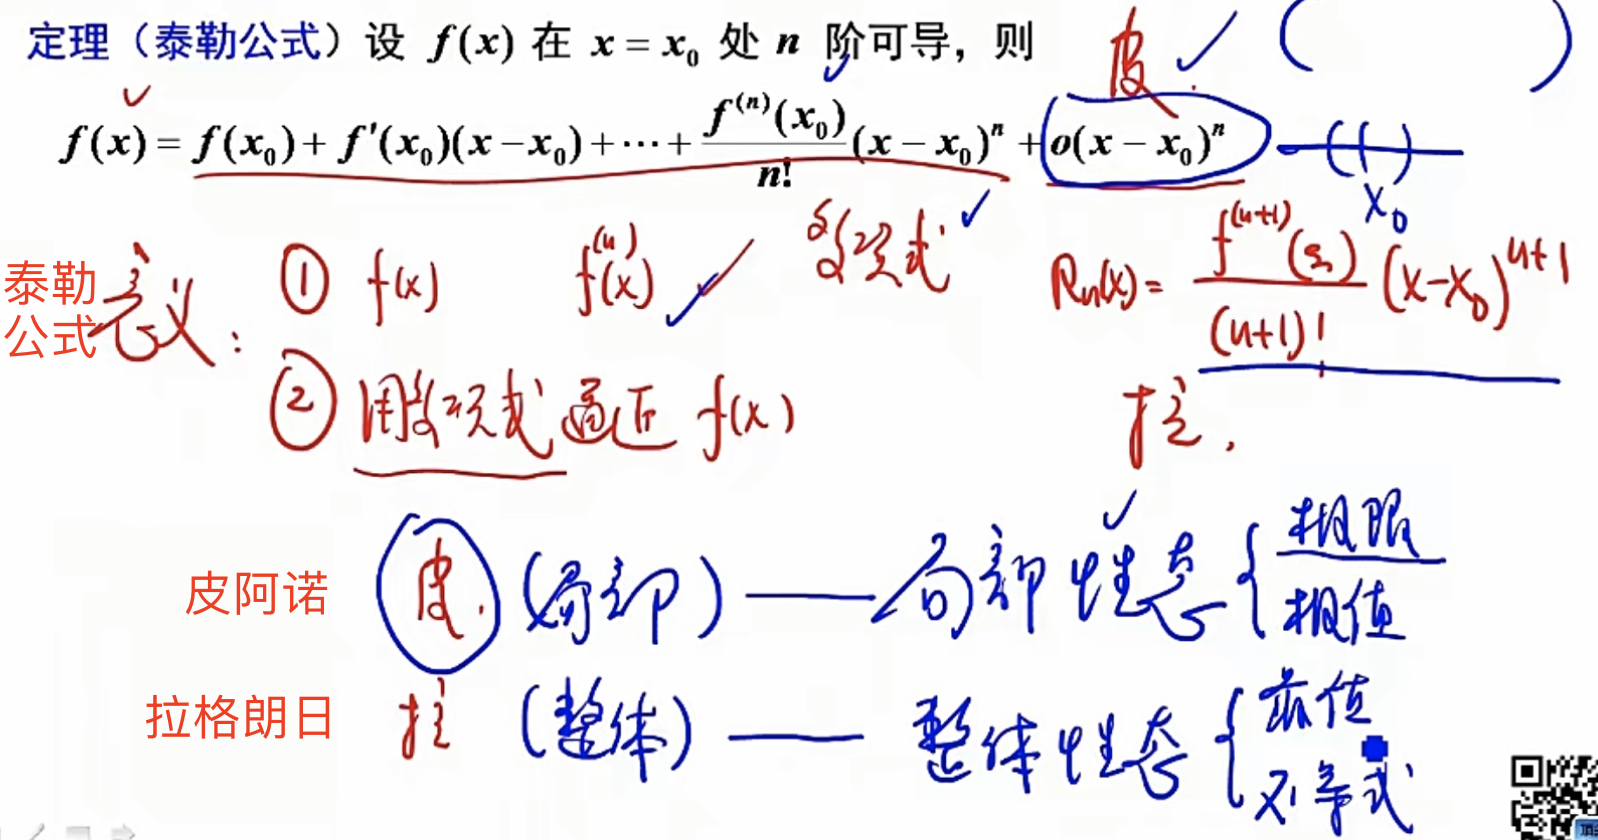 定理（泰勒公式）设 f(x) 在 x = x₀ 处 n 阶可导，则
皮.
f(x) = f(x₀) + f'(x₀)(x − x₀) + ⋯ + f⁽ⁿ⁾(x₀)/n! (x − x₀)ⁿ + o(x − x₀)ⁿ
x₀
泰勒公式 意义：
① f(x) f⁽ⁿ⁾(x) 多项式
Rₙ(x) = f⁽ⁿ⁺¹⁾(ξ)/(n+1)! (x − x₀)ⁿ⁺¹
拉.
② 用多项式逼近 f(x)
皮阿诺 皮.(局部) —— 局部性态 { 极限 极值
拉格朗日 拉(整体) —— 整体性态 { 最值 不等式